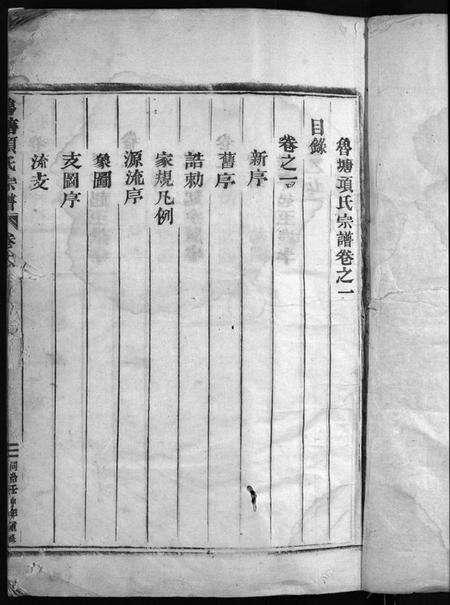 魯塘項氏宗譜卷之一
目錄
卷之一
新序
舊序
誥勅
家規凡例
源流序
象圖
支圖序
流支
魯塘項氏宗譜
同治壬申年